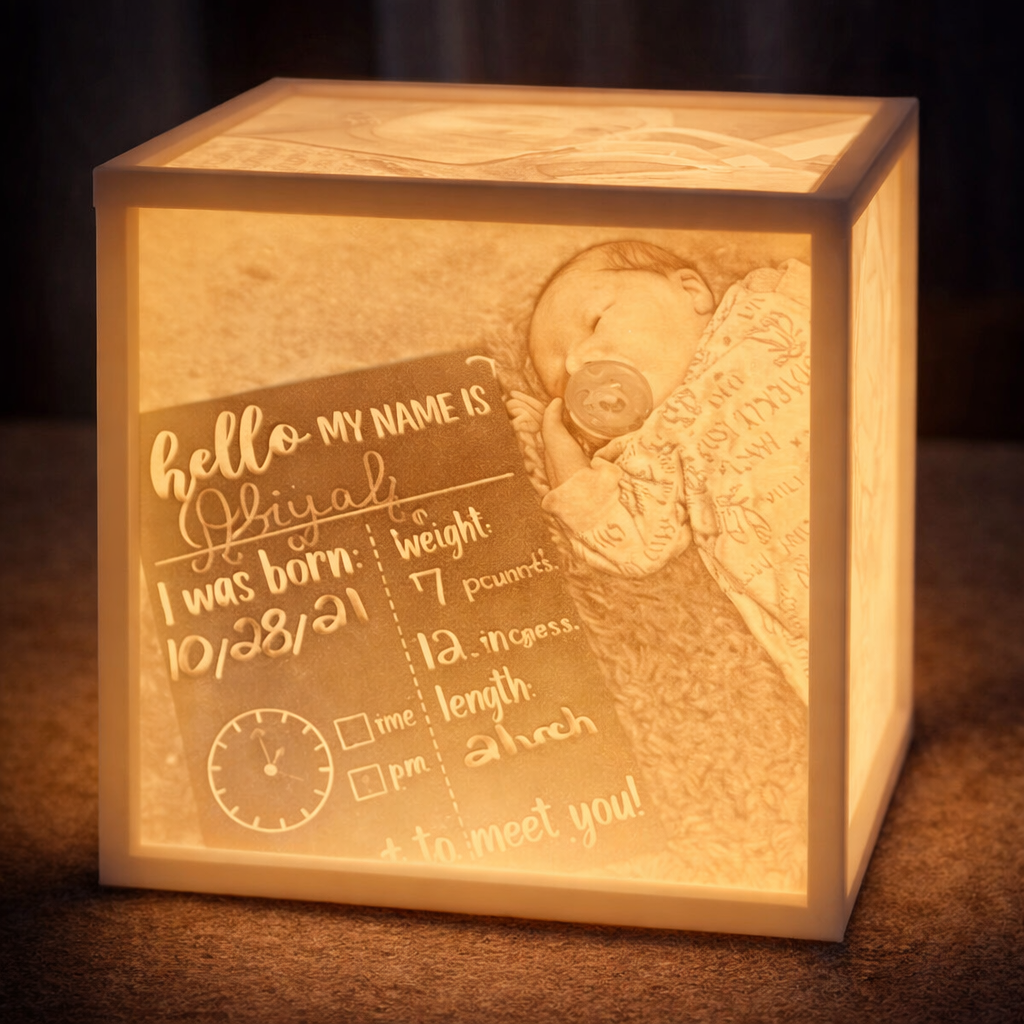 hello MY NAME IS
Abiyah
I was born:
10/28/21
weight:
7 pcunnts.
12. incgess.
length:
ime
pm
t to meet you!